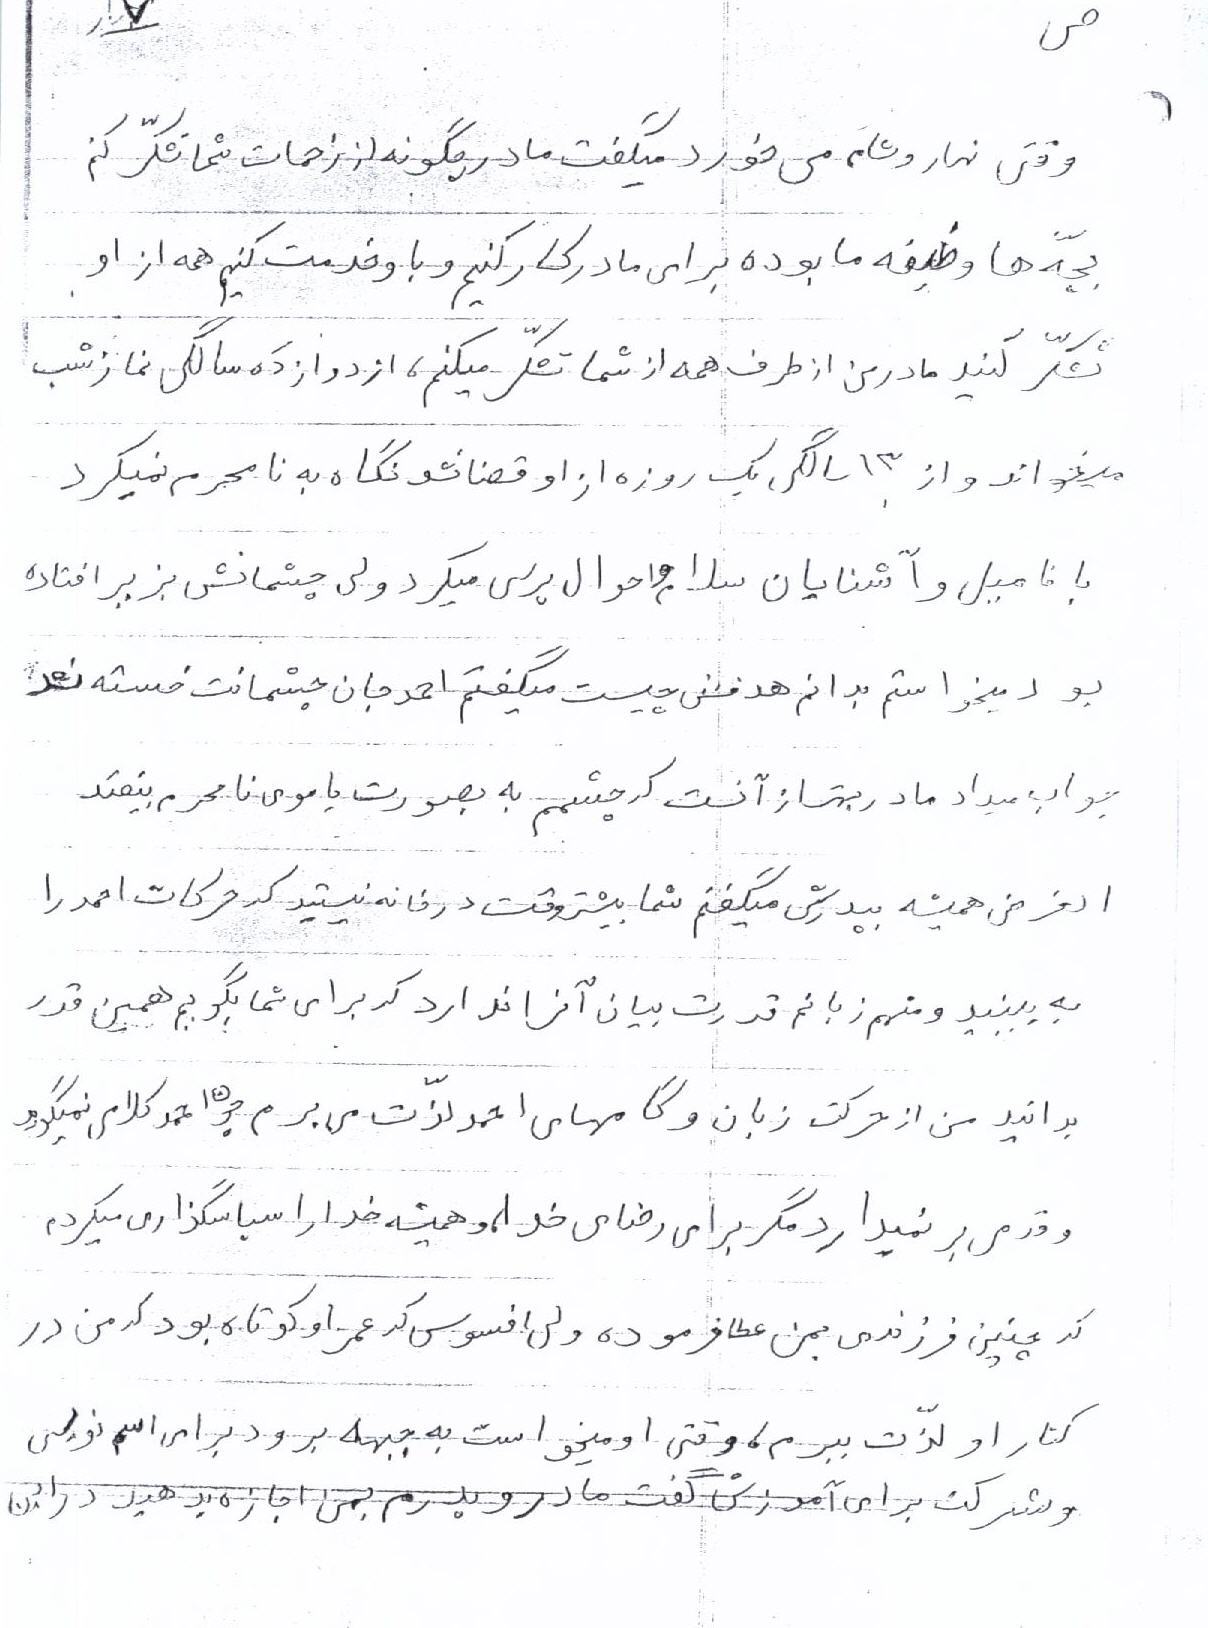 ص
وقتی نهار و شام می خورد میگفت مادر چگونه از زحمات شما تشکّر کنم
بچّه ها وظیفه ما بوده برای مادر کار کنیم و باو خدمت کنیم همه از او
تشکّر کنید مادر من از طرف همه از شما تشکّر میکنم، از دوازده سالگی نماز شب
میخواند و از ۱۳ سالگی یک روزه از او قضا نشد نگاه به نامحرم نمیکرد
با فامیل و آشنایان سلام و احوال پرسی میکرد ولی چشمانش بزیر افتاده
بود میخواستم بدانم هدفش چیست میگفتم احمد جان چشمانت خسته نشد
جواب میداد مادر بهتر از آنست که چشمم به بصورت یا موی نامحرم بیفتد
الغرض همیشه بپدرش میگفتم شما بیشتر وقت در خانه نیستید که حرکات احمد را
به ببینید و منهم زبانم قدرت بیان آنرا ندارد که برای شما بگویم همین قدر
بدانید من از حرکت زبان و گامهای احمد لذّت می برم چون احمد کلامی نمیگوید
و قدمی بر نمیدارد مگر برای رضای خدا، و همیشه خدا را سپاسگذاری میکردم
که چنین فرزندی بمن عطا فرموده ولی افسوس که عمر او کوتاه بود که من در
کنار او لذّت ببرم، وقتی او میخواست به جبهه برود برای اسم نویسی
و شرکت برای آموزش گفت مادر و پدرم بمن اجازه بدهید در این